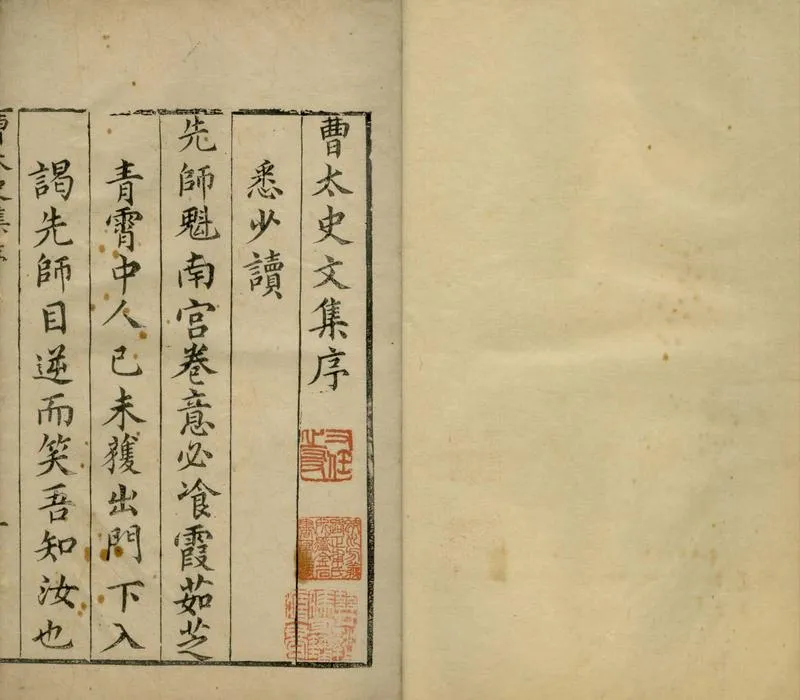 曹太史文集序
悉少讀
先師魁南宫卷意必飡霞茹芝
青霄中人已未獲出門下入
謁先師目逆而笑吾知汝也
曹太史集序